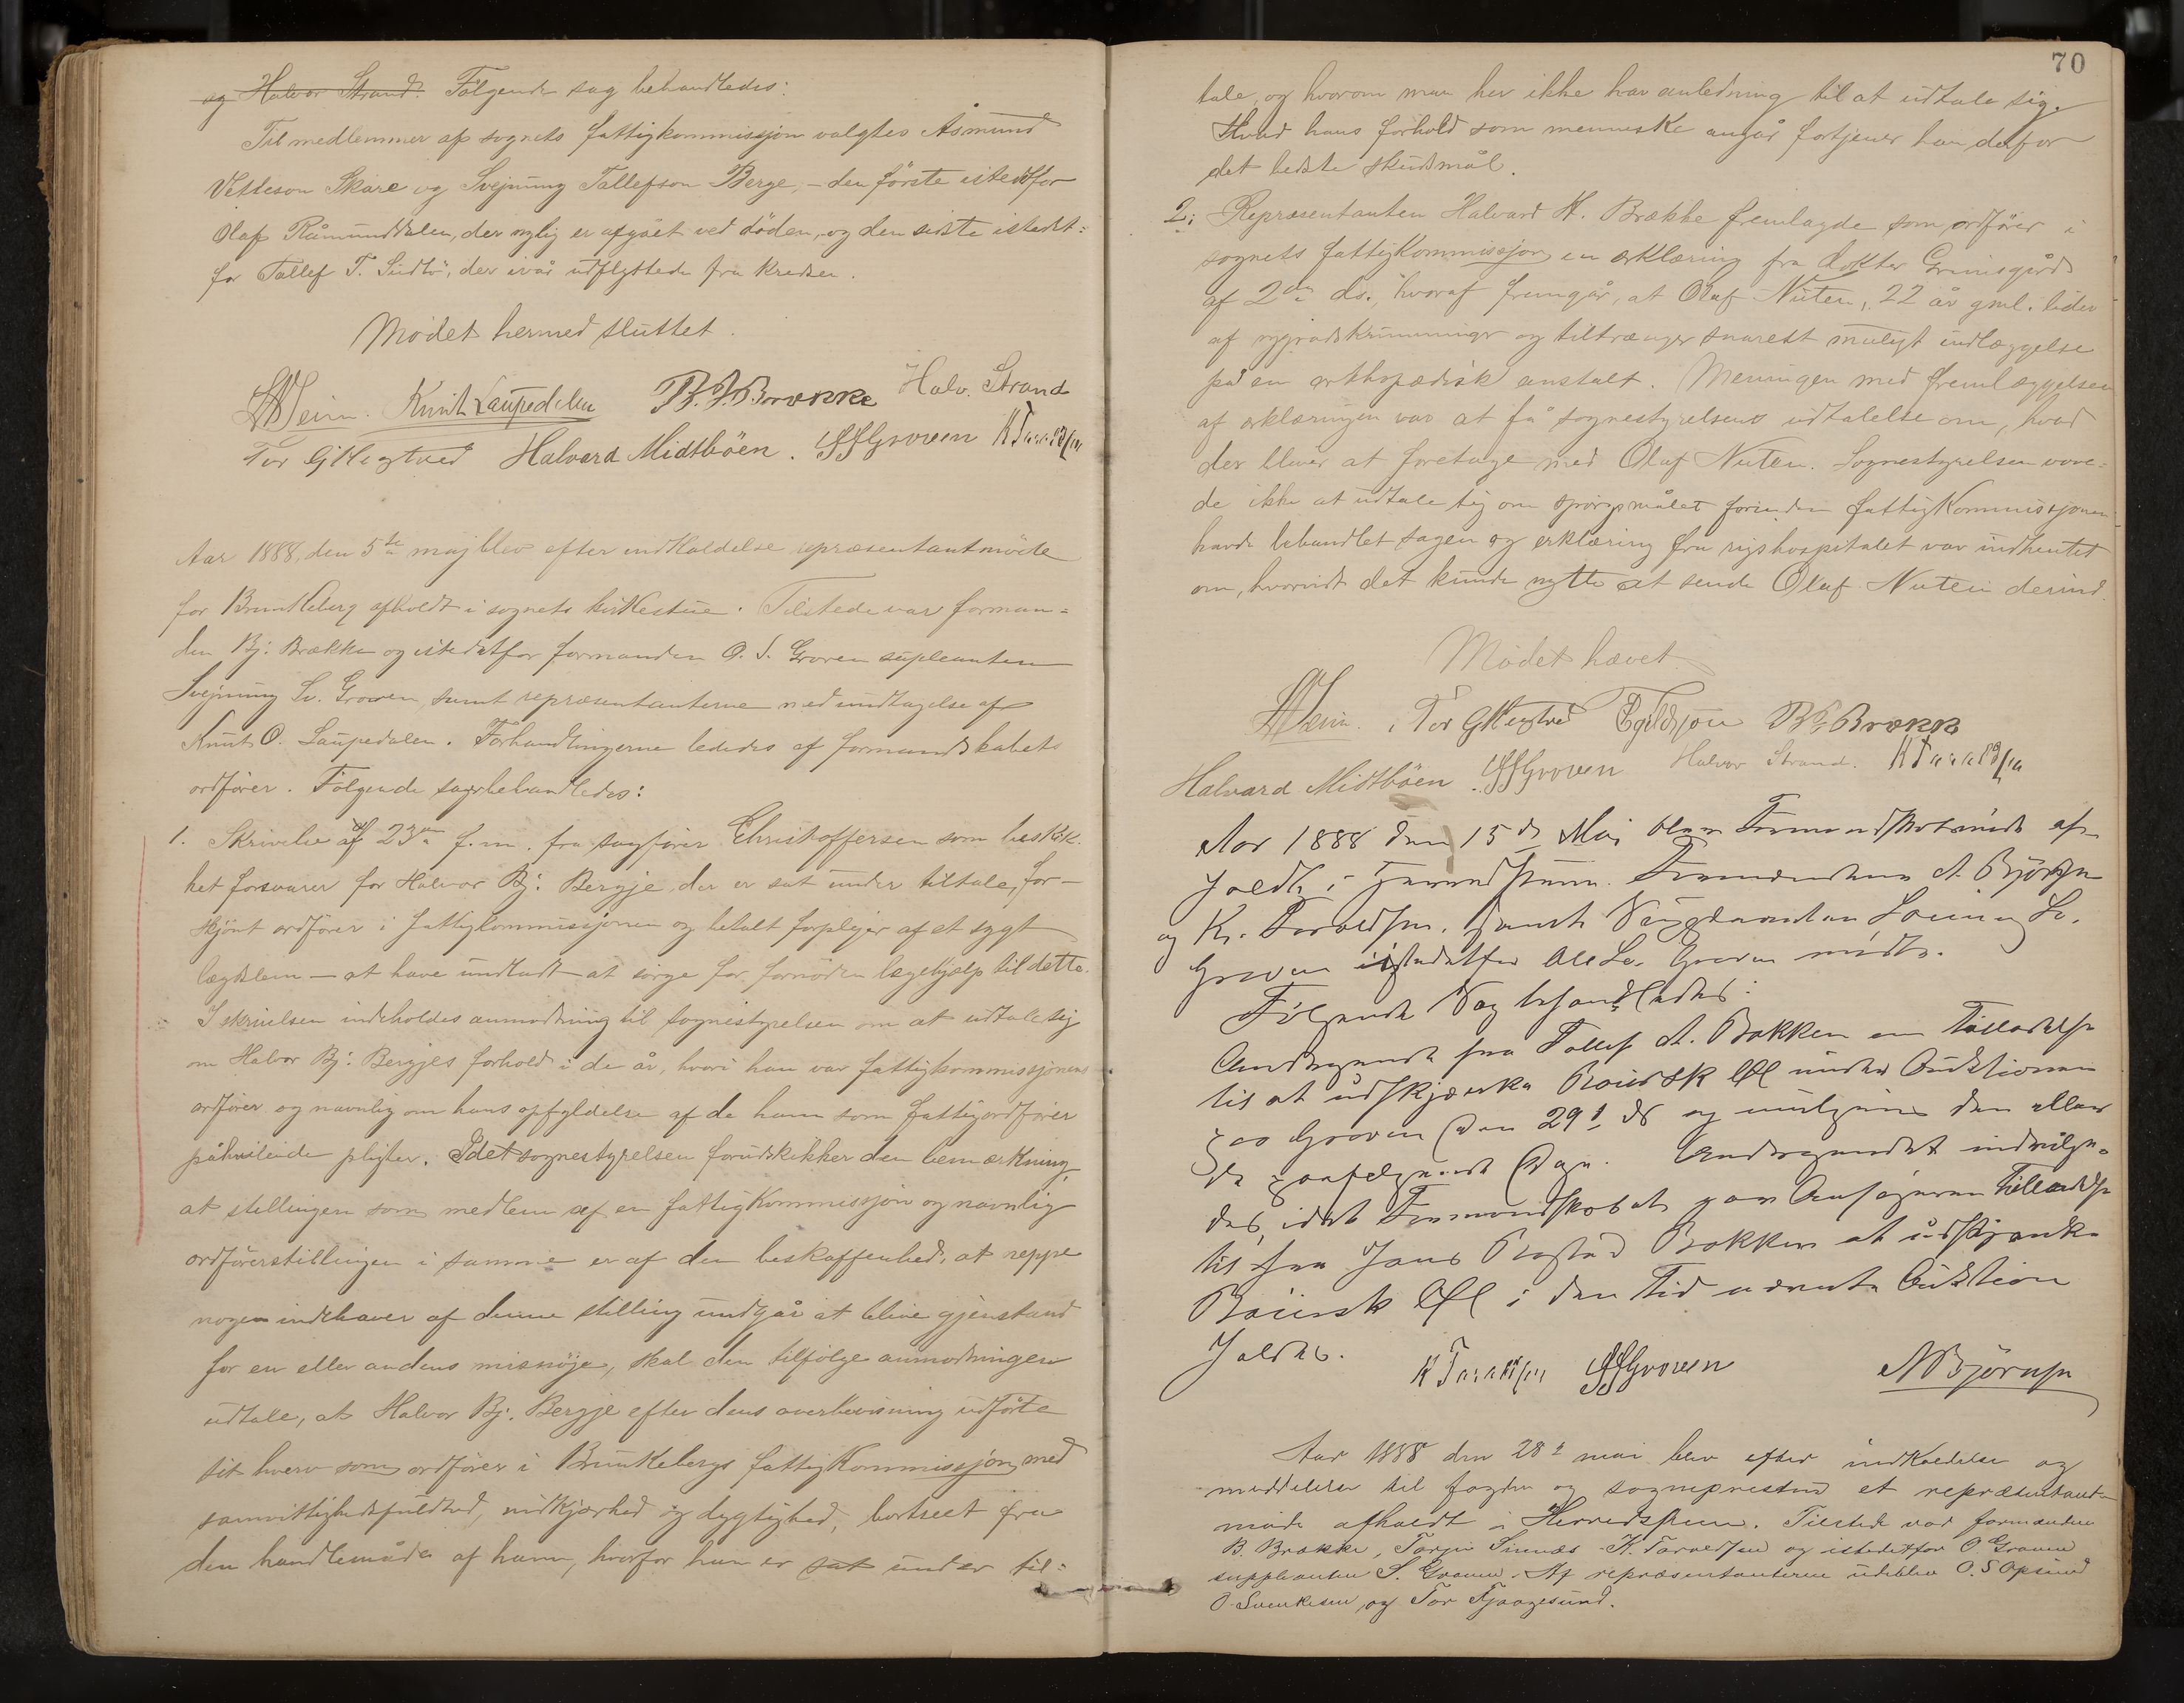 og Halvor Strand. Følgende sag behandledes:
Til medlemmer af sognets fattigkommissjon valgtes Åsmund
Vetleson Skåre og Svejnung Tallefson Berge, – den første istedetfor
Olaf Råmunddalen, der nylig er afgået ved døden, og den sidste istedet=
for Tallef T. Sudbø, der ivår udflyttede fra kredsen.
Mødet hermed sluttet.
Knut Laupedalen B. J. Brække Halv. Strand
Tor G Hegtved Halvard Midtböen. SSGroven
Aar 1888, den 5te maj blev efter indkaldelse repræsentantmöde
for Brunkeberg afholdt i sognets kirkestue. Tilstede var forman=
den Bj: Brække og istedetfor formanden O. S. Groven supleanten
Svejnung Sv. Groven, samt repræsentanterne med undtagelse af
Knut O. Laupedalen. Forhandlingerne lededes af formandskabets
ordfører. Følgende sager behandledes:
1. Skrivelse af 23de f. m. fra sagfører Christoffersen som beskik-
ket forsvarer for Halvor Bj: Bergje, der er sat under tiltale, for –
skjönt ordfører i fattigkommissjonen og betalt forplejer af et sygt
lægdslem – at have undladt at sörge for fornöden lægehjælp til dette.
I skrivelsen indeholdes anmodning til sognestyrelsen om at udtale sig
om Halvor Bj: Bergjes forhold i de år, hvori han var fattigkommissjonens
ordfører og navnlig om hans opfyldelse af de ham som fattigordfører
påhvilende pligter. Idet sognestyrelsen forudskikker den bemærkning,
at stillingen som medlem af en fattigkommissjon og navnlig
ordførerstillingen i samme er af den beskaffenhed, at neppe
nogen indehaver af denne stilling undgår at blive gjenstand
for en eller andens misnöje, skal den tilfölge anmodningen
udtale, at Halvor Bj. Bergje efter dens overbevisning udförte
sit hverv som ordfører i Brunkebergs fattigkommissjon med
samvittighedsfuldhed, nidkjærhed og dygtighed, bortseet fra
den handlemåde af ham, hvorfor han er sat under til=
70
tale, og hvorom man her ikke har anledning til at udtale sig.
Hvad hans forhold som menneske angår fortjener han derfor
det bedste skudsmål.
2: Repræsentanten Halvard H. Brække fremlagde som ordfører i
sognets fattigkommissjon en erklæring fra dokter Grimsgård
af 2den ds., hvoraf fremgår, at Olaf Nuten, 22 år gml. lider
af rygradskrumninger og tiltrænger snarest muligt indlæggelse
på en orthopædisk anstalt. Meningen med fremlæggelsen
af erklæringen var at få sognestyrelsens udtalelse om, hvad
der bliver at foretage med Olaf Nuten. Sognestyrelsen vove=
de ikke at udtale sig om spörgsmålet forinden fattigkommissjonen
havde behandlet sagen og erklæring fra rigshospitalet var indhentet
om, hvorvidt det kunde nytte at sende Olaf Nuten derind.
Mødet hævet.
Tor G Hegtved Bj. Brække
Halvard Midtböen. SSGroven Halvor Strand.
Aar 1888 den 15de Mai blev Formandskabsmøde af-
holdt i Herredstuen. Formændene A. Björnsen
og K. Taraldsen, samt Supleanten Sveinung Sv.
Groven istedetfor Ole Sv. Groven mödte.
Følgende Sag behandledes:
Andragende fra Tallef A. Bakken om Tilladelse
til at udskjænke Baiersk Øl under Auktionen
paa Groven den 29de ds og muligens den eller
de paafølgende Dage. Andragendet indvilge-
des, idet Formandskabet gav Ansøgeren Tilladelse
til fra Bakken at udskjænke
Baiersk Øl i den Tid nævnte Auktion
holdes.
K Taraldsen SSGroven ABjörnsen
Aar 1888 den 28de mai blev efter indkaldelse og
meddelelse til fogden og sognepresten et repræsentant-
möde afholdt i Herredstuen. Tilstede var formændene
B. Brække, Torjus Sinnes K. Taraldsen og istedetfor O. Groven
suppleanten S. Groven. Af repræsentanterne udeblev O. S Opsund
O. Svenkesen, og Tor Fjaagesund.